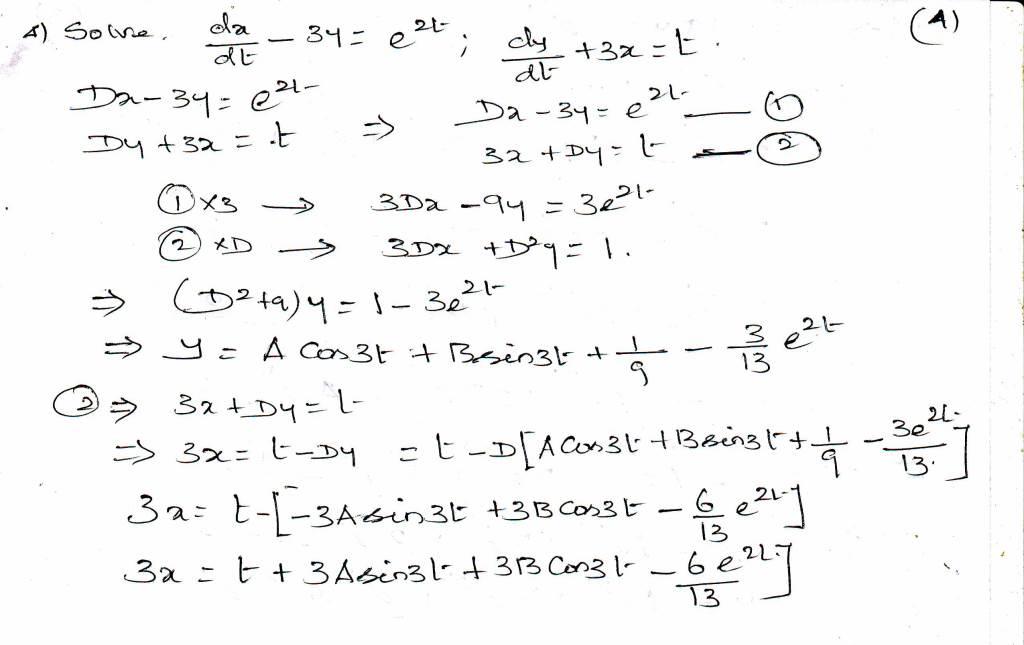 4) Solve. dx/dt - 3y = e^2t ; dy/dt + 3x = t. (A)
Dx - 3y = e^2t
Dy + 3x = t ⇒ Dx - 3y = e^2t — ①
3x + Dy = t — ②
① x3 → 3Dx - 9y = 3e^2t
② xD → 3Dx + D²y = 1.
⇒ (D²+9)y = 1 - 3e^2t
⇒ y = A Cos3t + B sin3t + 1/9 - 3/13 e^2t
② ⇒ 3x + Dy = t
⇒ 3x = t - Dy = t - D[A Cos3t + B sin3t + 1/9 - 3e^2t/13.]
3x = t - [-3A sin3t + 3B Cos3t - 6/13 e^2t]
3x = t + 3A sin3t + 3B Cos3t - 6e^2t/13]